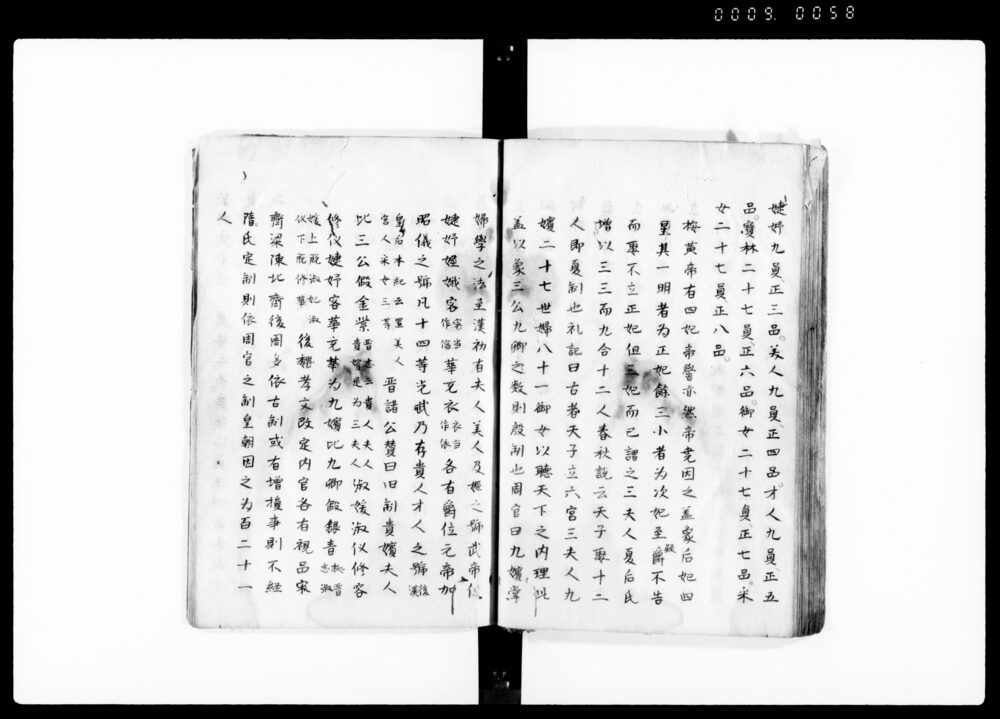 0009. 0058
婕妤九員正三品。美人九員正四品。才人九員正五
品。寶林二十七員正六品。御女二十七員正七品。采
女二十七員正八品。
按黄帝有四妃帝嚳亦然帝堯因之盖象后妃四
星其一明者为正妃餘三小者为次妃至爵疑不告
而娶不立正妃但三妃而已謂之三夫人夏后氏
增以三三而九合十二人春秋説云天子娶十二
人即夏制也礼記曰古者天子立六宮三夫人九
嬪二十七世婦八十一御女以聽天下之内理此
盖以象三公九卿之数則殷制也周官曰九嬪掌
婦學之法至漢初有夫人美人及姬之號武帝
婕妤娙娥容容当作傛華充衣衣当作依各有爵位元帝加
昭儀之號凡十四等光武乃存貴人才人之號後漢
皇后本紀云置美人宮人采女三等晋諸公賛曰旧制貴嬪夫人
比三公假金紫晋書云貴人夫人貴嬪是为三夫人淑媛淑仪修容
修仪婕妤容華充華为九嬪比九卿假銀青按晋志淑
媛上脱淑妃淑仪下脱修華後魏孝文改定内官各有視品宋
齊梁陳北齊後周多依古制或有增損事則不経
隋氏定制則依周官之制皇朝因之为百二十一
人